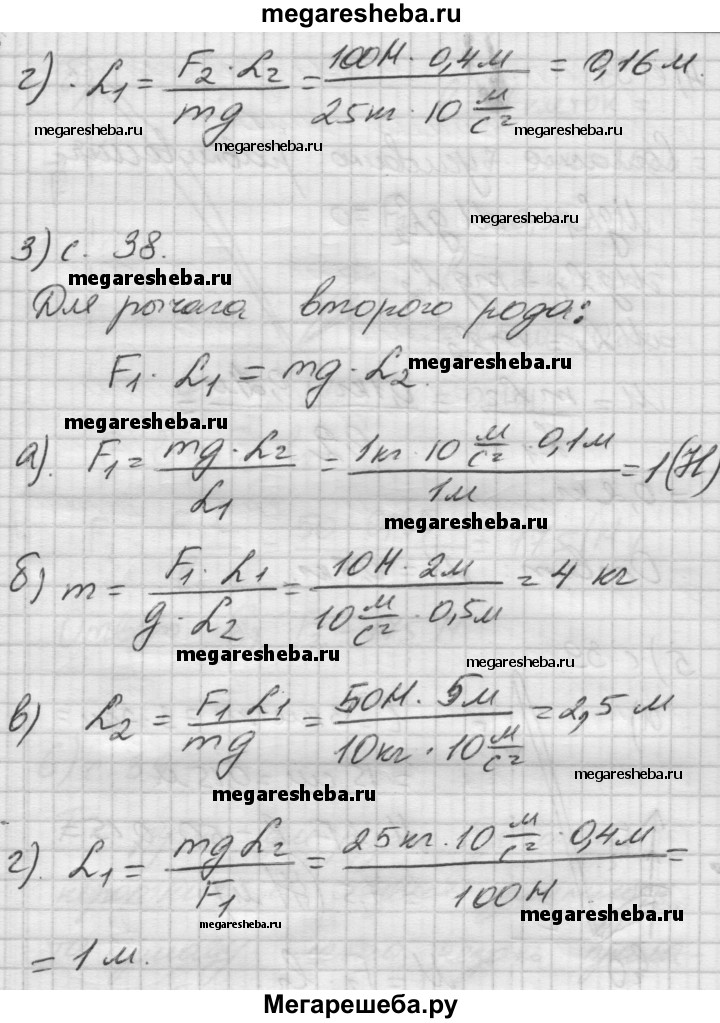 megaresheba.ru
г) · L₁ = F₂ · L₂ / mg = 100Н · 0,4м / 25кг · 10 м/с² = 0,16 м.
megaresheba.ru megaresheba.ru megaresheba.ru
megaresheba.ru
3) с. 38.
megaresheba.ru
Для рычага второго рода:
megaresheba.ru
F₁ · L₁ = mg · L₂.
megaresheba.ru
а). F₁ = mg · L₂ / L₁ = 1кг · 10 м/с² · 0,1м / 1м = 1(Н)
megaresheba.ru
б) m = F₁ · L₁ / g · L₂ = 10Н · 2м / 10 м/с² · 0,5м = 4 кг
megaresheba.ru megaresheba.ru
в) L₂ = F₁ L₁ / mg = 50Н · 5м / 10кг · 10 м/с² = 2,5 м
megaresheba.ru
megaresheba.ru
г). L₁ = mg L₂ / F₁ = 25кг · 10 м/с² · 0,4м / 100Н =
megaresheba.ru megaresheba.ru
= 1 м.
Мегарешеба.ру